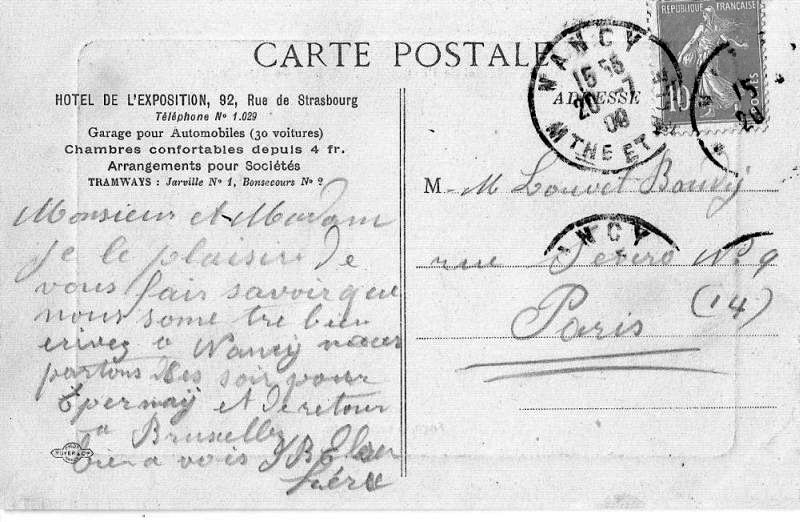 CARTE POSTALE
HOTEL DE L'EXPOSITION, 92, Rue de Strasbourg
Téléphone Nº 1.029
Garage pour Automobiles (30 voitures)
Chambres confortables depuis 4 fr.
Arrangements pour Sociétés
TRAMWAYS : Jarville Nº 1, Bonsecours Nº 2
Monsieur et Madam
je le plaisir de
vous fair savoir que
nous some tre bien
à Nancy
partons ses soir pour
Epernaÿ et de retour
a Bruxelles
RÉPUBLIQUE FRANÇAISE
10
POSTES
NANCY
15 55
20 -7
09
MTHE ET
ADRESSE
M. M Louvet
NANCY
rue No 9
(14)
Paris
15
20